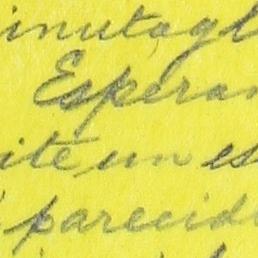 inutagl
Esperan
ite un es
parecid